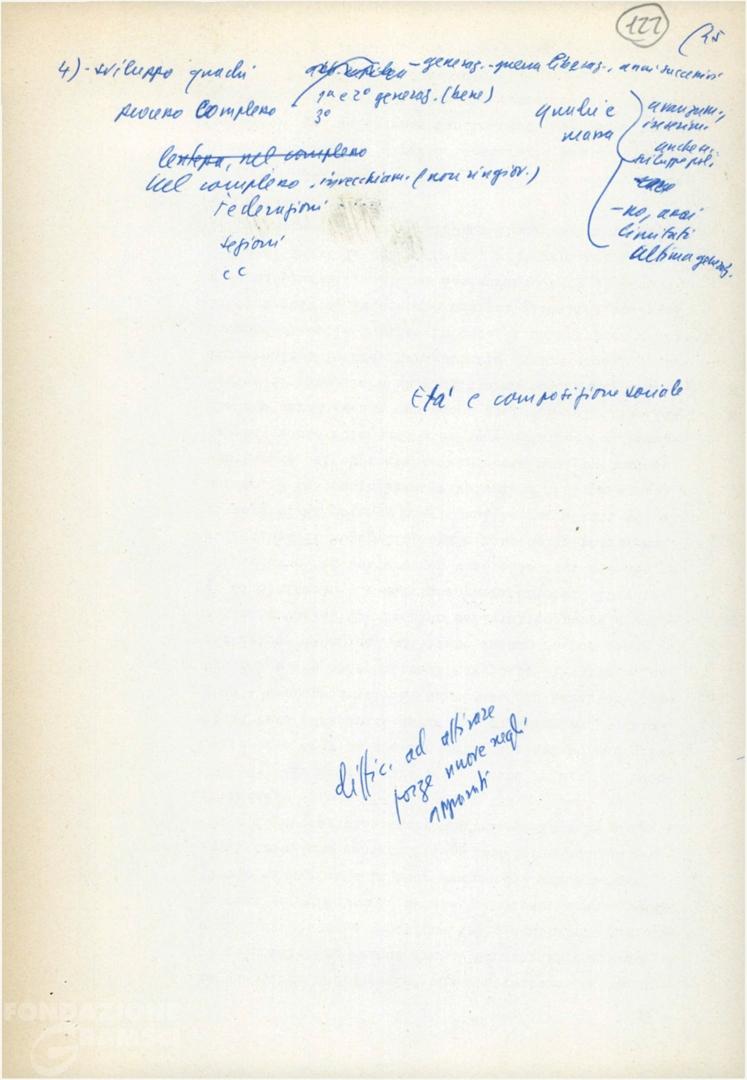 122
25
4) - sviluppo quadri - generaz. - guerra liberaz., anni successivi
processo complesso 1ª e 2ª generaz. (bene)
3º
quadri e
massa
avanzam.,
anche a
sviluppo poli
- no, anzi
limitati
ultima generaz.
lentezza, nel complesso
Nel complesso, invecchiam. (non ringiov.)
Federazioni
sezioni
CC
Età e composizione sociale
diffic. ad attivare
forze nuove negli
apparati
FONDAZIONE
GRAMSCI